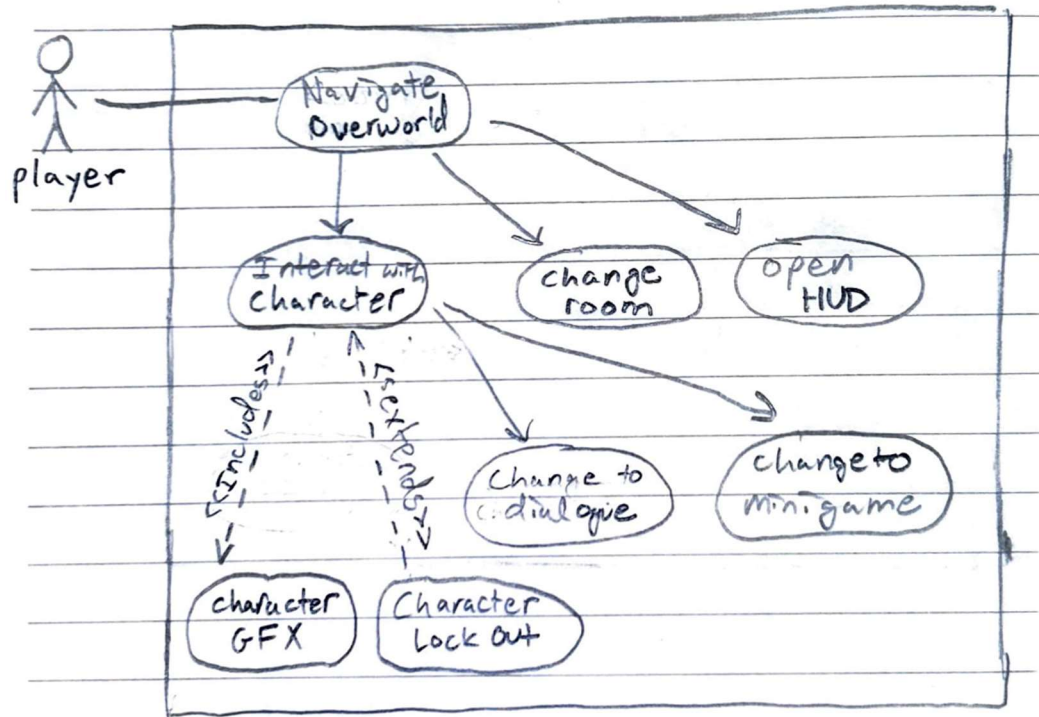 Navigate
Overworld
player
Interact with
Character
change
room
open
HUD
<<Includes>>
<<extends>>
Change to
dialogue
change to
minigame
character
GFX
Character
Lock Out